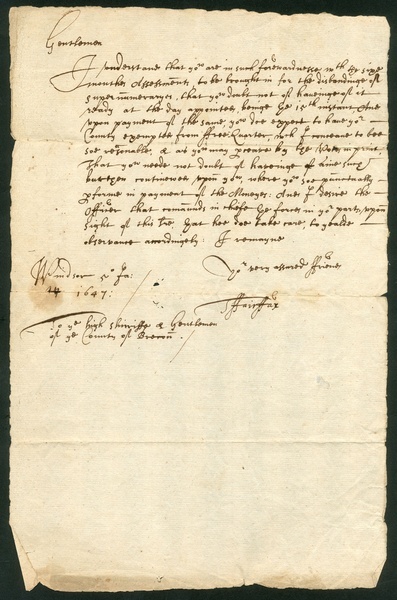 Gentlemen
I understand that yor are in such forwardnesse wth the sixe
monthes Assessment, to be brought in for the disbandinge of
supernumeraryes, that you doubt not of haveinge of it
ready at the day appointed, beinge the 15th instant, And
upon payment of the same, you doe expect to have yor
County exempted from ffree Quarter, wch I conceave to bee
soe reasonable, & as you may perceave by the in print
that you neede not doubt of haveinge of
burthen continewed upon you, where you soe punctually
pforme in payment of the Moneyes: And I desire the
Officer that comands in cheife the forces in yor parts, upon
sight of this lre, that hee doe take care, to yealde
observance accordingly: I remayne
Yor very assured ffriend
Windsor Ja:
1647:
ffairffax
To ye high Sherriffe & Gentlemen
of ye County of Brecon: